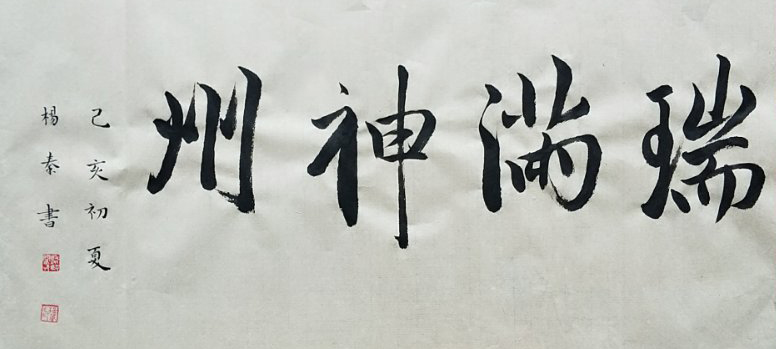 瑞满神州
己亥初夏
杨秦书